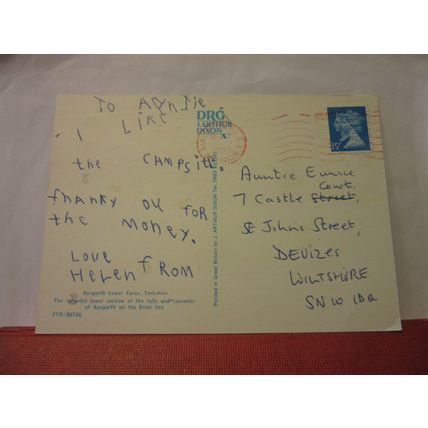 To AUNTIE
I LIKE
the CAMPSITE.
thanky ou for
the Money.
Love
Helen fROM
Aysgarth Lower Force, Yorkshire
The splendid lower section of the falls and cascades
of Aysgarth on the River Ure
PYD/86746
DRG
J. ARTHUR
DIXON
Printed in Great Britain by J. ARTHUR DIXON
15
Auntie Eunice
Court.
7 Castle Street,
St Johns Street,
DEVIZES
WILTSHIRE
SN10 1DQ